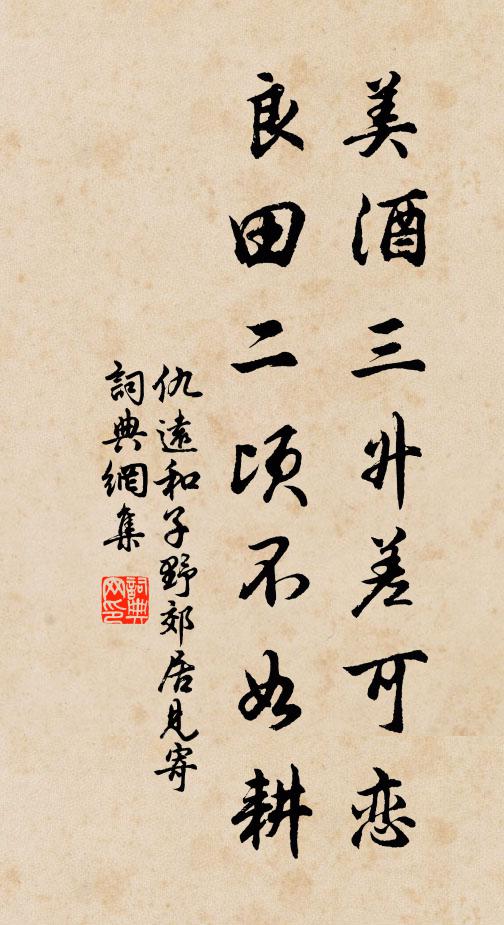 美酒三升差可恋
良田二顷不如耕
仇遠和子野郊居見寄
詞典網集
詞典網印